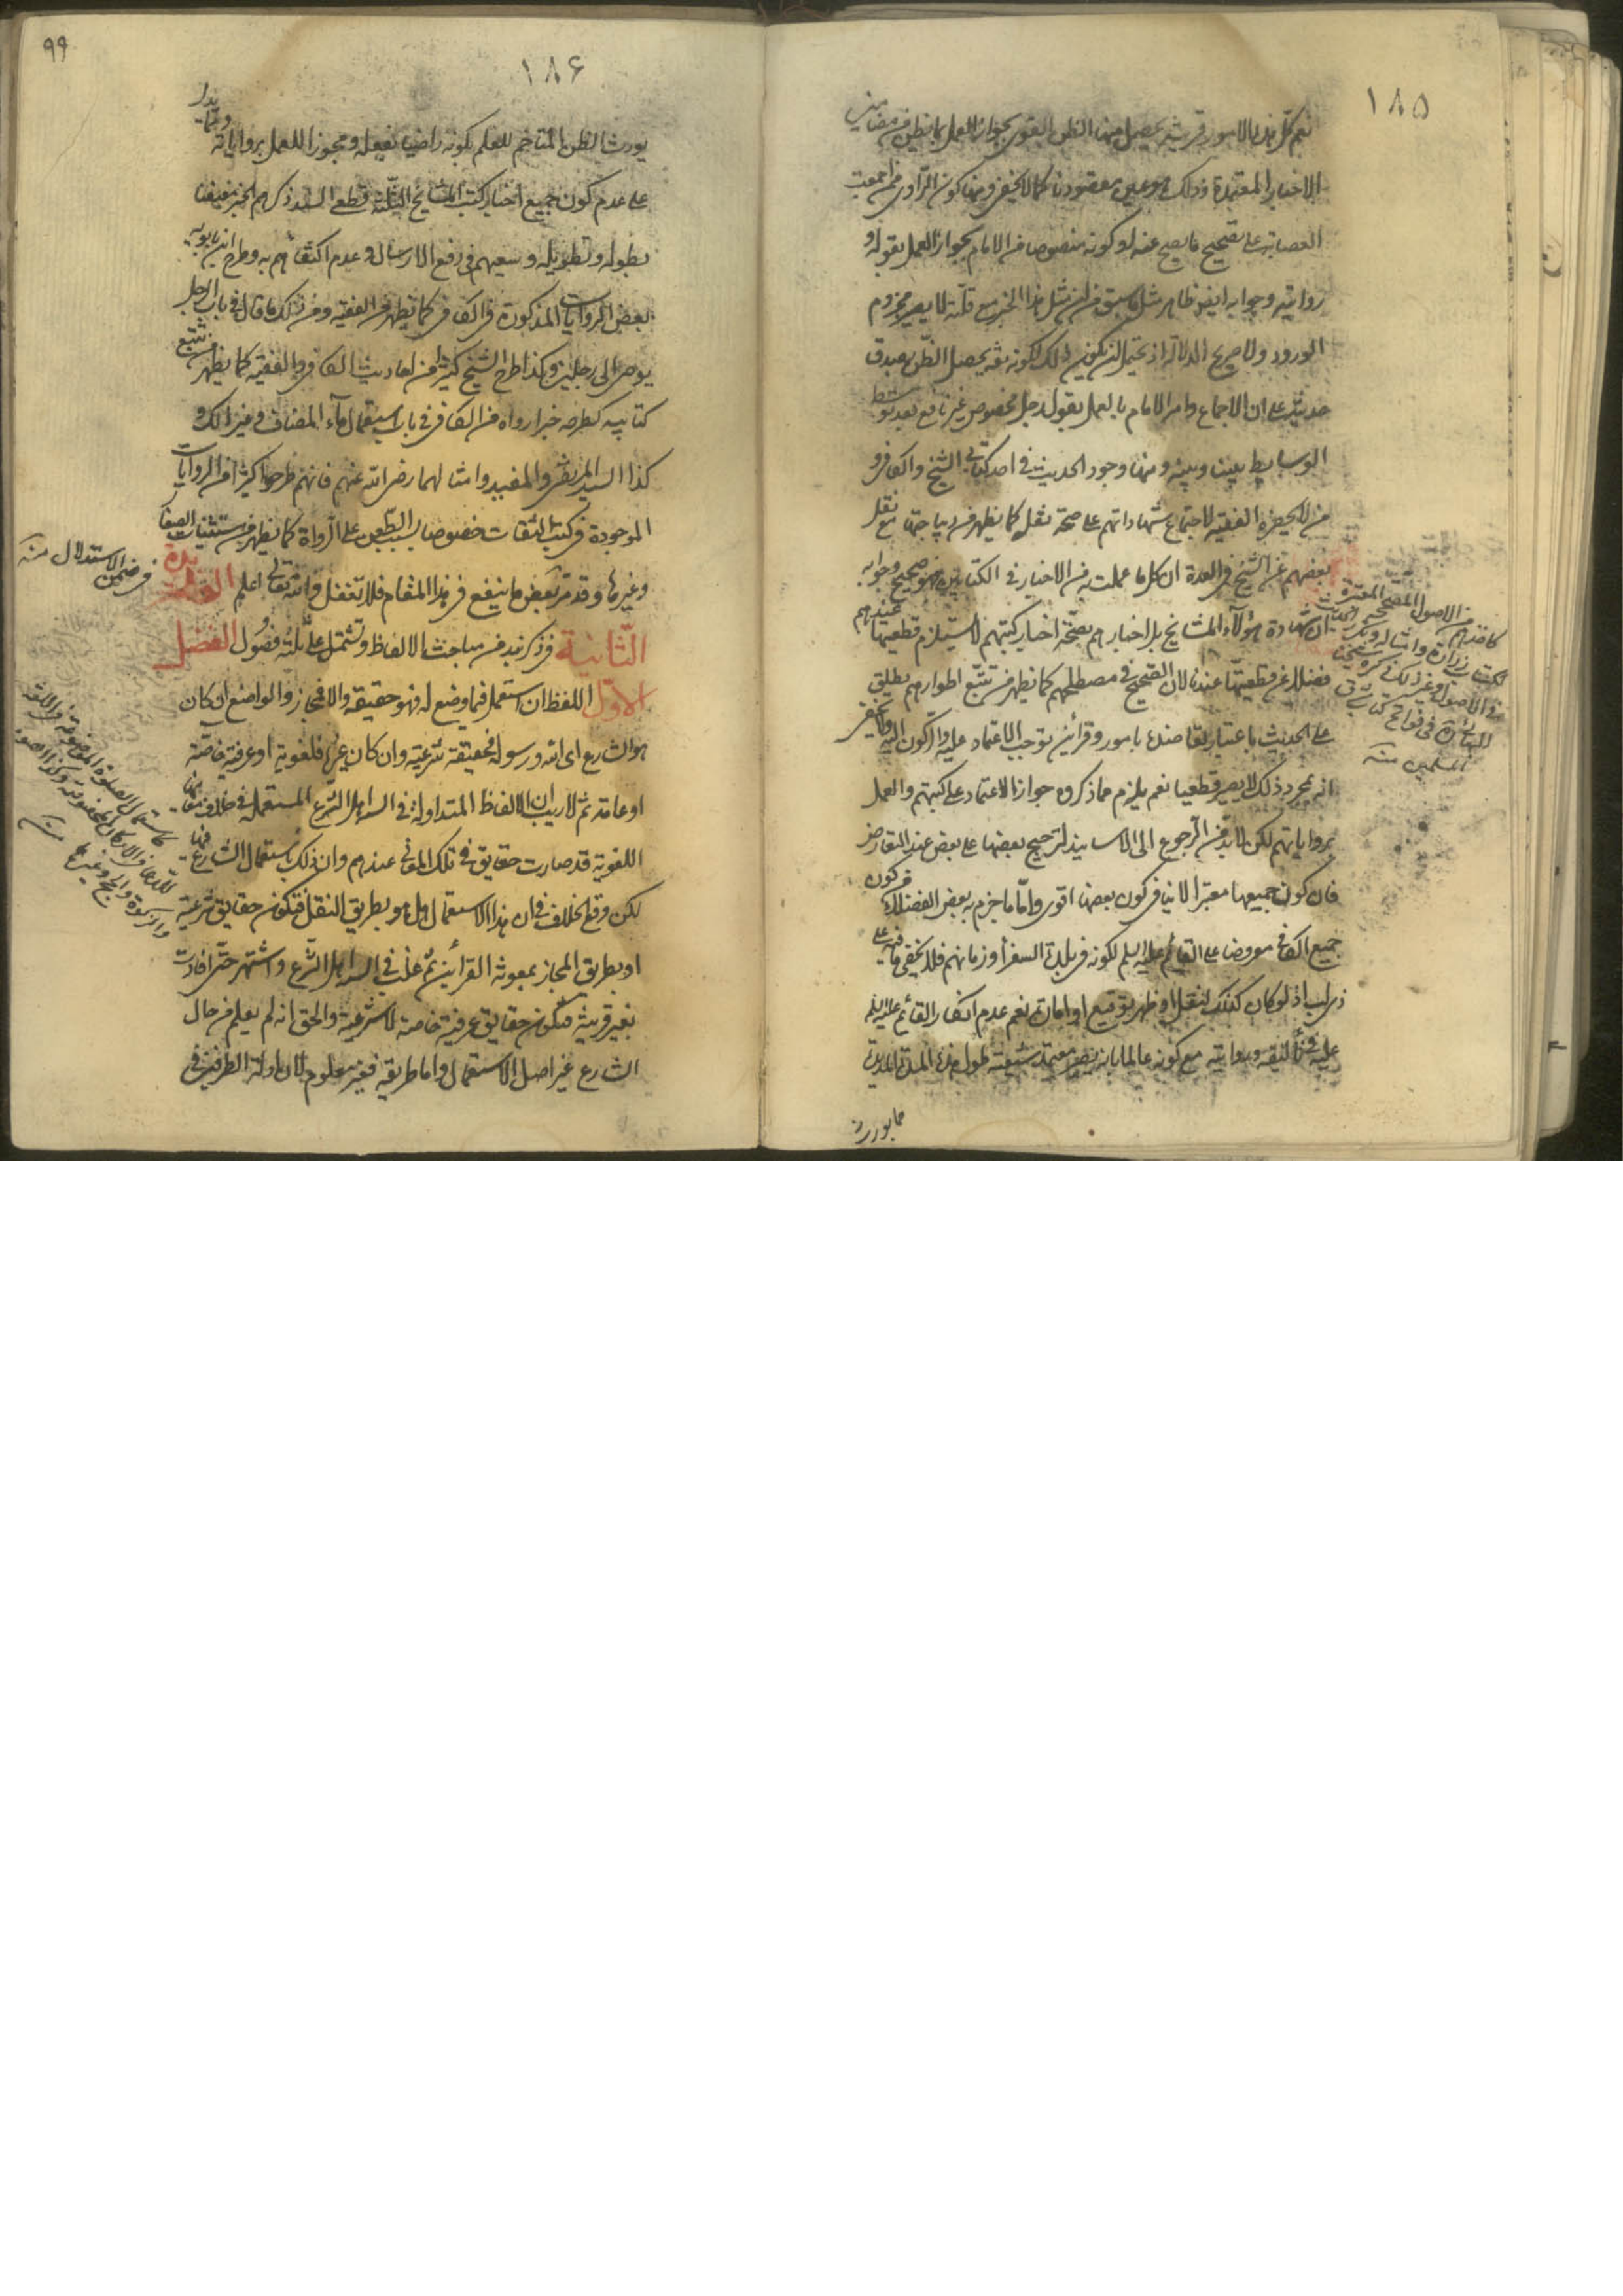 ١٨٥
نعم كل هذه الامور قرينة يحصل منها الظن القوى بجواز العمل بما يظن من مضامين
الاخبار المعتمدة وذلك هو عين مقصودنا كما لا يخفى ومنها كون الراوى ممن اجمعت
العصابة على تصحيح ما يصح عنه او كونه منصوصا من الامام بجواز العمل بقوله و
روايته وجوابه ايضا ظاهر مثل ما سبق فان مثل هذا الخبر مع قلته لا يصير مجزوم
الورود ولا صريح الدلالة اذ يحتمل ان يكون ذلك لكونه ثقة يحصل الظن بصدق
حديثه على ان الاجماع وامر الامام بالعمل بقول رجل مخصوص غير نافع بعد توسط
الوسايط بيننا وبينه ومنها وجود الحديث في احد كتابى الشيخ والكافى و
من لا يحضره الفقيه لاجتماع شهاداتهم على صحة نقله كما يظهر من ديباجتها مع نقل
بعضهم عن الشيخ في العدة ان كل ما عملت به من الاخبار في الكتابين فهو صحيح وجوابه
ان شهادة هؤلاء المشايخ بل اخبارهم بصحة اخبار كتبهم لا يستلزم قطعيتها عندهم
فضلا عن قطعيتها عندنا لان الصحيح في مصطلحهم كما يظهر من تتبع اطوارهم يطلق
على الحديث باعتبار تعاضده بامور وقرائن توجب الاعتماد عليه والركون اليه ولا يخفى
انه بمجرد ذلك لا يصير قطعيا نعم يلزم مما ذكروه جواز الاعتماد على كتبهم والعمل
برواياتهم لكن لا بد من الرجوع الى الاسانيد لترجيح بعضها على بعض عند التعارض
فان كون جميعها معتبرا لا ينافى كون بعضها اقوى واما ما جزم به بعض الفضلاء من كون
جميع الكافى معروضا على القائم عليه السلم لكونه في بلدة السفراء وزمانهم فلا يخفى ما فيه على
ذى لب اذ لو كان كذلك لنقل او ظهر بتوقيع او امارة نعم عدم انكار القائم عليه السلم
عليه في تأليفه وروايته مع كونه عالما بانه يصير معتمد شيعته طول هذه المدة المديدة
مما يورث
كما ضدهم من الاصول المصححة المعتبرة
ككتاب زرارة وامثاله
من الاصول وغير ذلك
المسلمين منه
٩٩
١٨۶
يورث الظن المتاخم للعلم بكونه راضيا بفعله ومجوزا للعمل برواياته ومما يدل
على عدم كون جميع اخبار كتب المشايخ الثلثة قطعى السند ذكرهم الخبر معنعنا
بطوله وتطويله وسعيهم في رفع الارسال وعدم اكتفائهم به وطرح ابن بابويه
بعض الروايات المذكورة في الكافى كما يظهر من الفقيه ومن ذلك ما قال في باب الرجل
يوصى الى رجلين وكذا طرح الشيخ كثيرا من احاديث الكافى والفقيه كما يظهر من تتبع
كتابيه كطرحه خبرا رواه من الكافى في باب استعمال ماء المضاف وغير ذلك و
كذا السيد المرتضى والمفيد وامثالهما رضى الله عنهم فانهم طرحوا كثيرا من الروايات
الموجودة في كتب الثقات خصوصا بسبب الطعن على الرواة كما يظهر من مستثنيات الصفار
وغيرها وقد مر بعض ما ينفع في هذا المقام فلا تغفل والله تعالى اعلم الفايدة
الثانية في ذكر نبذ من مباحث الالفاظ وتشتمل على ثلثة فصول الفصل
الاول اللفظ ان استعمل فيما وضع له فهو حقيقة والا فمجاز والواضع ان كان
هو الشارع اى الله ورسوله فحقيقة شرعية وان كان غيره فلغوية او عرفية خاصة
او عامة ثم لا ريب ان الالفاظ المتداولة في السنة اهل الشرع المستعملة في خلاف معانيها
اللغوية قد صارت حقايق في تلك المعانى عندهم وان ذلك باستعمال الشارع فيها
لكن وقع الخلاف في ان هذا الاستعمال هل هو بطريق النقل فتكون حقايق شرعية
او بطريق المجاز بمعونة القرائن ثم غلبت في السنة اهل الشرع واشتهر حتى افادت
بغير قرينة فتكون حقايق عرفية خاصة لا شرعية والحق انه لم يعلم من حال
الشارع غير اصل الاستعمال واما طريقه فغير معلوم لان ادلة الطرفين في
في ضمن الاستدلال منه
كاستعمال الصلوة الموضوعة في اللغة
للدعاء في الاركان المخصوصة وكذا الصوم
والزكوة والحج وغيرها
منه